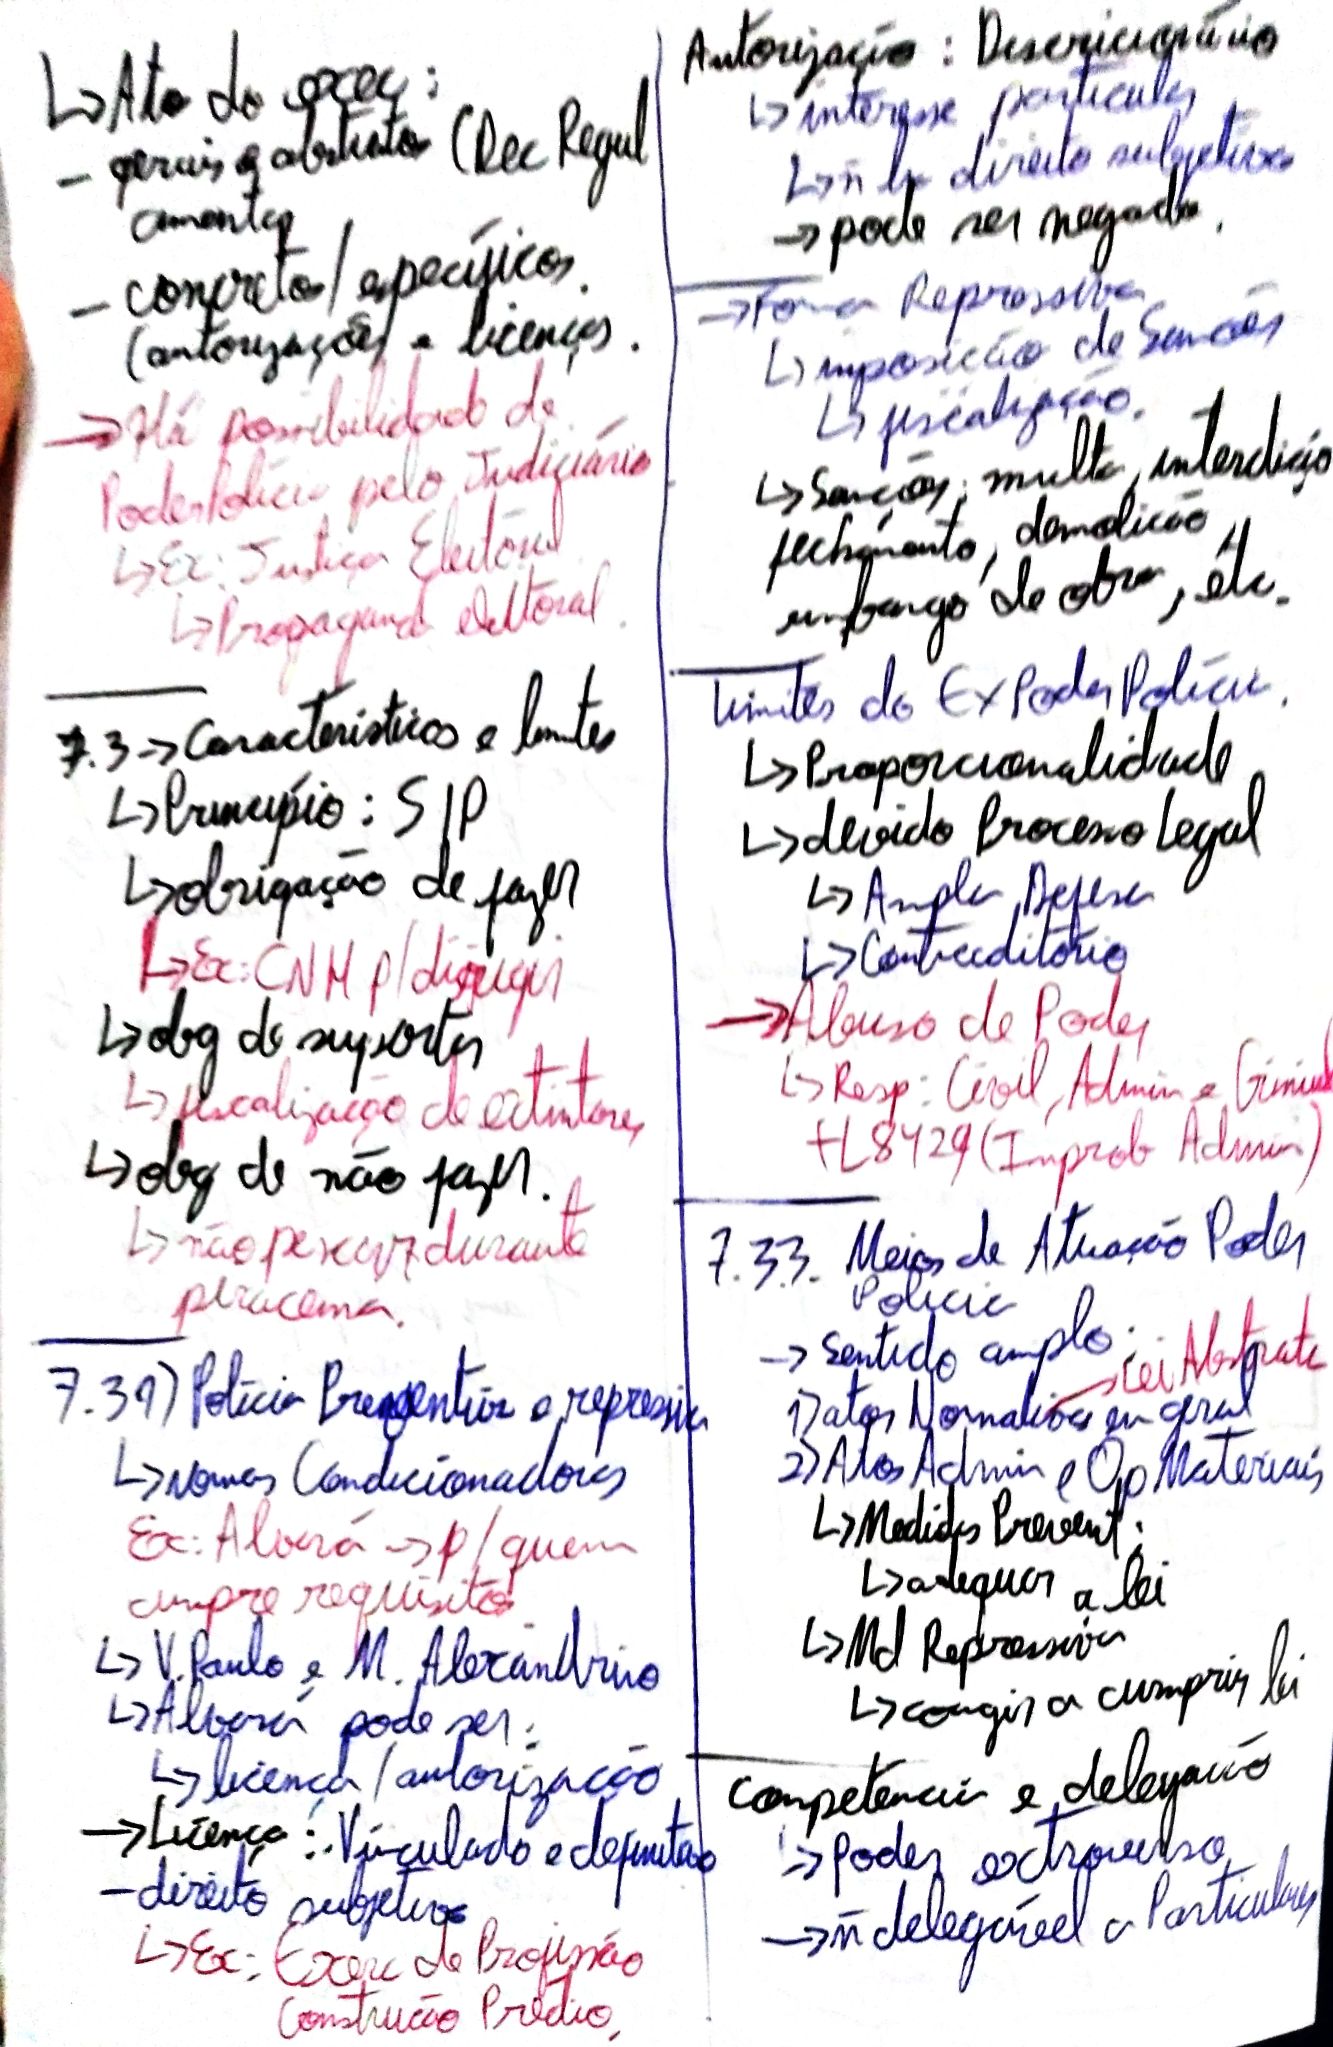 ↳ Ato do exec:
- gerais e abstratos (Dec Regul
amentar
- concretos / específicos.
(autorizações e licenças.
→ Há possibilidade de
Poder Polícia pelo Judiciário
↳ Ex: Justiça Eleitoral
↳ Propaganda eleitoral.
7.3 → Característicos e limites
↳ Princípio: S/P
↳ obrigação de fazer
↳ Ex: CNH p/ dirigir
↳ obg de suportar
↳ fiscalização de extintores
↳ obg de não fazer.
↳ não pescar durante
piracema.
7.31) Polícia Preventiva e repressiva
↳ Normas Condicionadoras
Ex: Alvará → p/ quem
cumpre requisitos
↳ V. Paulo e M. Alexandrino
↳ Alvará pode ser:
↳ licença / autorização
→ Licença: Vinculado e definitivo
- direito subjetivo
↳ Ex: Exerc de Profissão
Construção Prédio,
Autorização: Discricionário
↳ interesse particular
↳ ñ há direito subjetivo
→ pode ser negado.
→ Forma Repressiva
↳ imposição de Sanções
↳ fiscalização.
↳ Sanções: multa, interdição
fechamento, demolição,
embargo de obra, etc.
Limites do Ex Poder Polícia.
↳ Proporcionalidade
↳ devido Processo Legal
↳ Ampla Defesa
↳ Contraditório
→ Abuso de Poder
↳ Resp: Civil, Admin e Criminal
+ L 8429 (Improb Admin)
7.33. Meios de Atuação Poder
Polícia
→ Sentido amplo:
→ Lei Abstrata
1) atos Normativos em geral
2) Atos Admin e Op Materiais
↳ Medidas Prevent:
↳ adequar a lei
↳ Md Repressiva
↳ coagir a cumprir lei
Competência e delegação
→ Poder extroverso
→ ñ delegável a Particulares